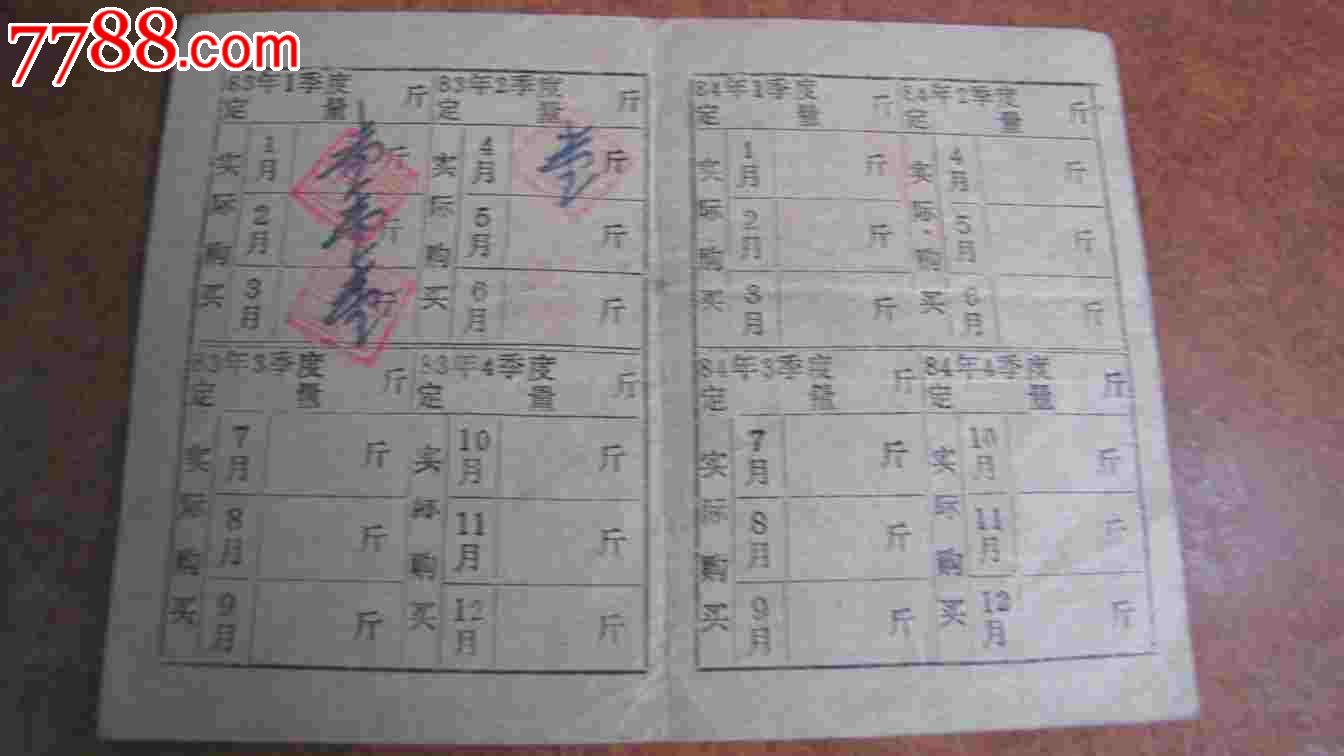 7788.com
83年1季度
定量 斤
实际购买
1月 壹 斤
2月 斤
3月 壹 斤
83年2季度
定量 斤
实际购买
4月 壹 斤
5月 斤
6月 斤
83年3季度
定量 斤
实际购买
7月 斤
8月 斤
9月 斤
83年4季度
定量 斤
实际购买
10月 斤
11月 斤
12月 斤
84年1季度
定量 斤
实际购买
1月 斤
2月 斤
3月 斤
84年2季度
定量 斤
实际购买
4月 斤
5月 斤
6月 斤
84年3季度
定量 斤
实际购买
7月 斤
8月 斤
9月 斤
84年4季度
定量 斤
实际购买
10月 斤
11月 斤
12月 斤